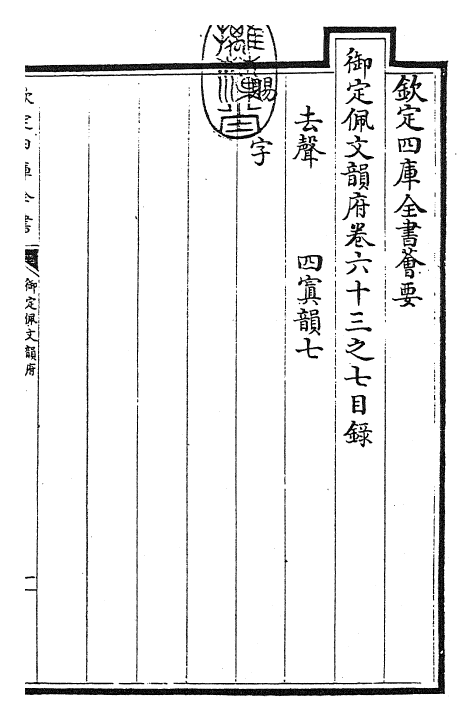 欽定四庫全書薈要
御定佩文韻府卷六十三之七目錄
去聲 四寘韻七
賜
字
欽定四庫全書
御定佩文韻府
一